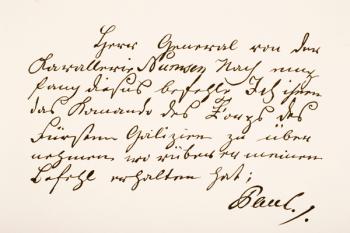 Herr General von der
Kavallerie Numsen Nach emp
fang dieses befehle Ich ihnen
das Komando des Korps des
Fürsten Galizien zu über
nehmen, wo rüber er meinen
Befehl erhalten hat;
Paul.